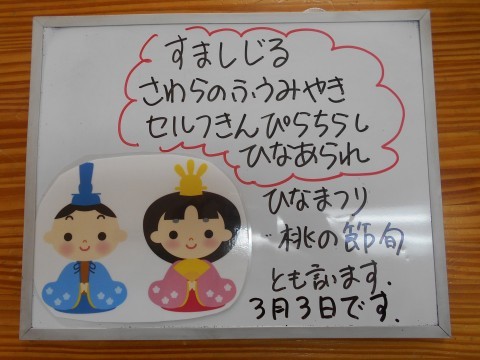 すましじる
さわらのふうみやき
セルフきんぴらちらし
ひなあられ
ひなまつり
桃の節旬
とも言います.
3月3日です.